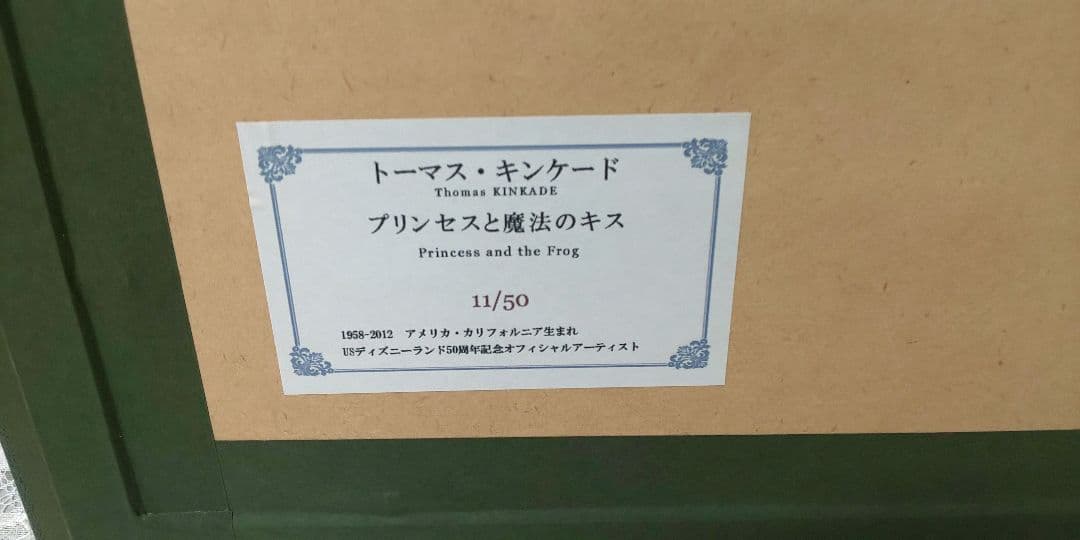 トーマス・キンケード
Thomas KINKADE
プリンセスと魔法のキス
Princess and the Frog
11/50
1958-2012 アメリカ・カリフォルニア生まれ
USディズニーランド50周年記念オフィシャルアーティスト